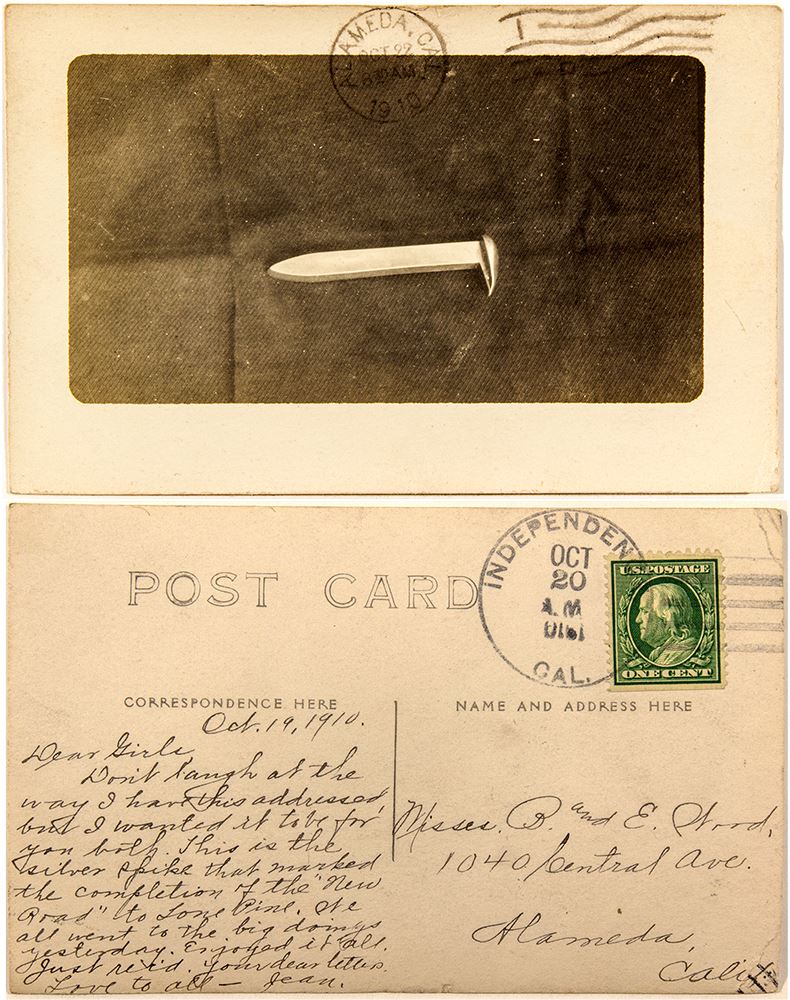 ALAMEDA, CAL.
OCT 22
8 30 AM
1910
POST CARD
INDEPENDEN
OCT
20
A.M.
CAL.
U.S. POSTAGE
ONE CENT
CORRESPONDENCE HERE
NAME AND ADDRESS HERE
Oct. 19, 1910.
Dear Girls,
Don't laugh at the
way I have this addressed,
but I wanted it to be for
you both. This is the
silver spike that marked
the completion of the "New
Road" to Lone Pine. We
all went to the big doings
yesterday. Enjoyed it all.
Just rec'd. your dear letters.
Love to all — Jean.
Misses. B. and E. Wood,
1040 Central Ave.
Alameda,
Calif